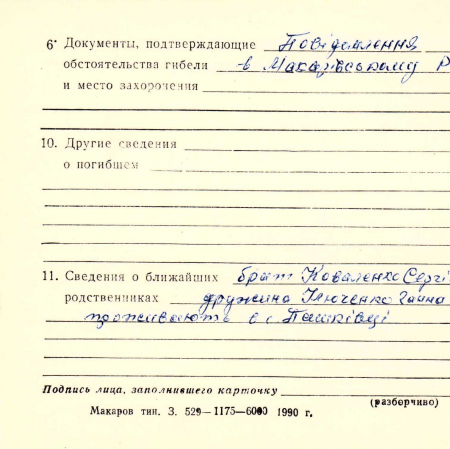 6. Документы, подтверждающие Повідомлення
обстоятельства гибели в Макарівському Р
и место захоронения
10. Другие сведения
о погибшем
11. Сведения о ближайших брат Коваленко Сергі
родственниках дружина Ілюченко Ганна
проживають в с Пашківці
Подпись лица, заполнившего карточку
(разборчиво)
Макаров тип. З. 529—1175—6000 1990 г.